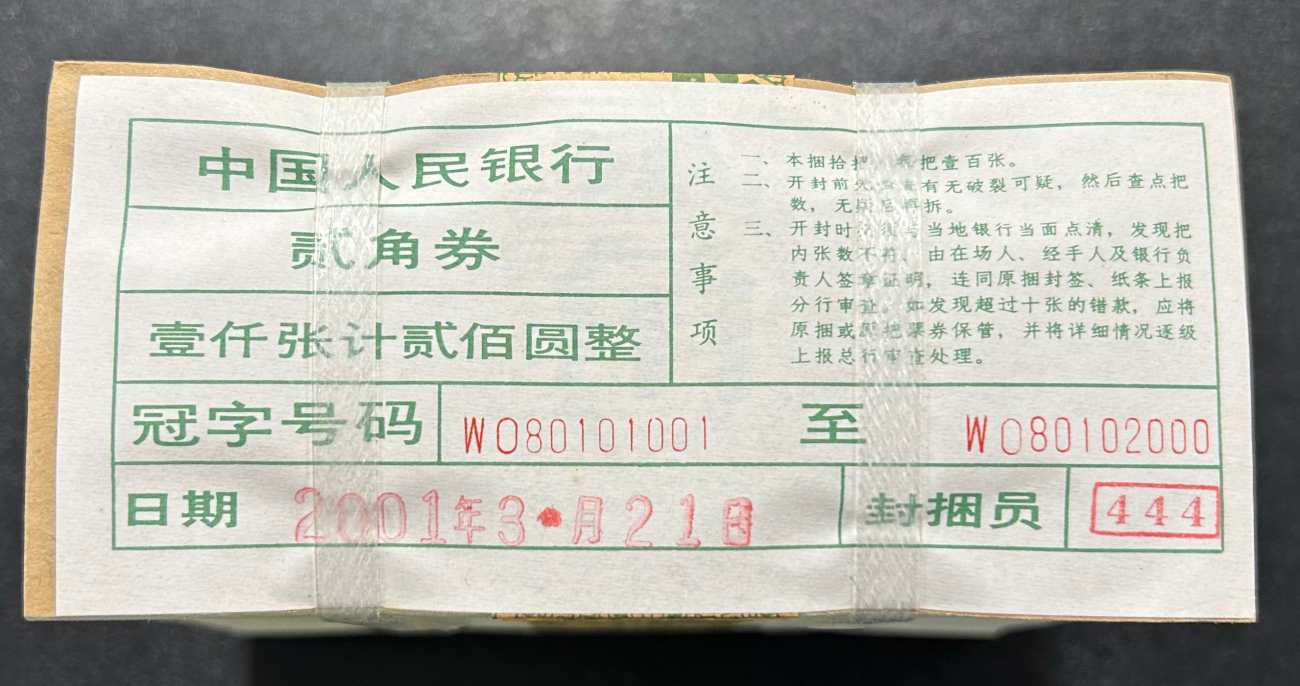 中国人民银行
贰角券
壹仟张计贰佰圆整
注意事项
一、本捆拾把，每把壹百张。
二、开封前先查有无破裂可疑，然后查点把
数，无误后再拆。
三、开封时必须与当地银行当面点清，发现把
内张数不符，由在场人、经手人及银行负
责人签章证明，连同原捆封签、纸条上报
分行审查。如发现超过十张的错款，应将
原捆或原把票券保管，并将详细情况逐级
上报总行审查处理。
冠字号码 WO80101001 至 WO80102000
日期 2001年3月21日 封捆员 444